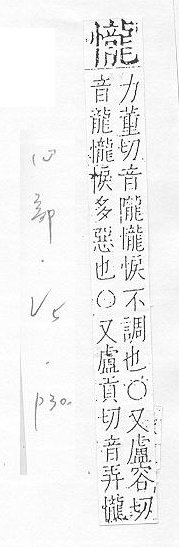 㦕
力董切音隴㦕悷不調也〇又盧容切
音龍㦕悷多惡也〇又盧貢切音弄㦕
心部．V5．p30.